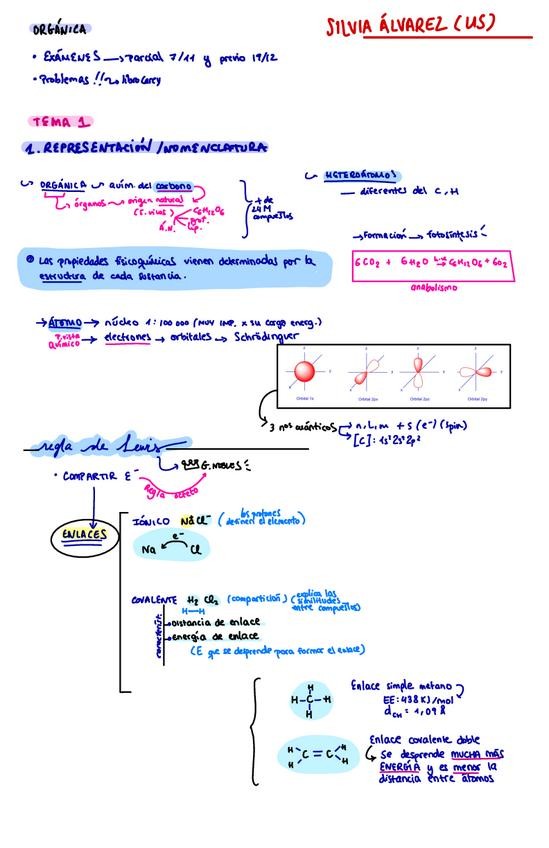 ORGÁNICA
SILVIA ÁLVAREZ (US)
• EXÁMENES → parcial 7/11 y previo 19/12
• Problemas !! → libro Carey
TEMA 1
1. REPRESENTACIÓN/NOMENCLATURA
ORGÁNICA quím. del carbono
órganos → origen natural
(s. vivos) C6H12O6
prot.
lip.
A.N.
+ de
24 M
compuestos
HETEROÁTOMOS
— diferentes del C, H
→ Formación → fotosíntesis
6CO2 + 6H2O → C6H12O6 + 6O2
anabolismo
Las propiedades fisicoquímicas vienen determinadas por la
estructura de cada sustancia.
→ ÁTOMO → núcleo 1:100 000 (MUY IMP. x su carga energ.)
P. vista
químico → electrones → orbitales → Schrödinguer
Orbital 1s Orbital 2px Orbital 2pz Orbital 2py
3 nos cuánticos → n, l, m + s (e-) (spin)
[C]: 1s² 2s² 2p²
regla de Lewis
G. NOBLES
• COMPARTIR E-
Regla octeto
ENLACES
IÓNICO NaCl (los protones
definen el elemento)
e-
Na Cl
COVALENTE H2 Cl2 (compartición) (explica las
similitudes
entre compuestos)
H—H
característ.
→ Distancia de enlace
→ energía de enlace
(E que se desprende para formar el enlace)
H
H-C-H
H
Enlace simple metano
EE: 438 KJ/mol
dCH = 1,09 Å
H H
C=C
H H
Enlace covalente doble
Se desprende MUCHA MÁS
ENERGÍA y es menor la
distancia entre átomos